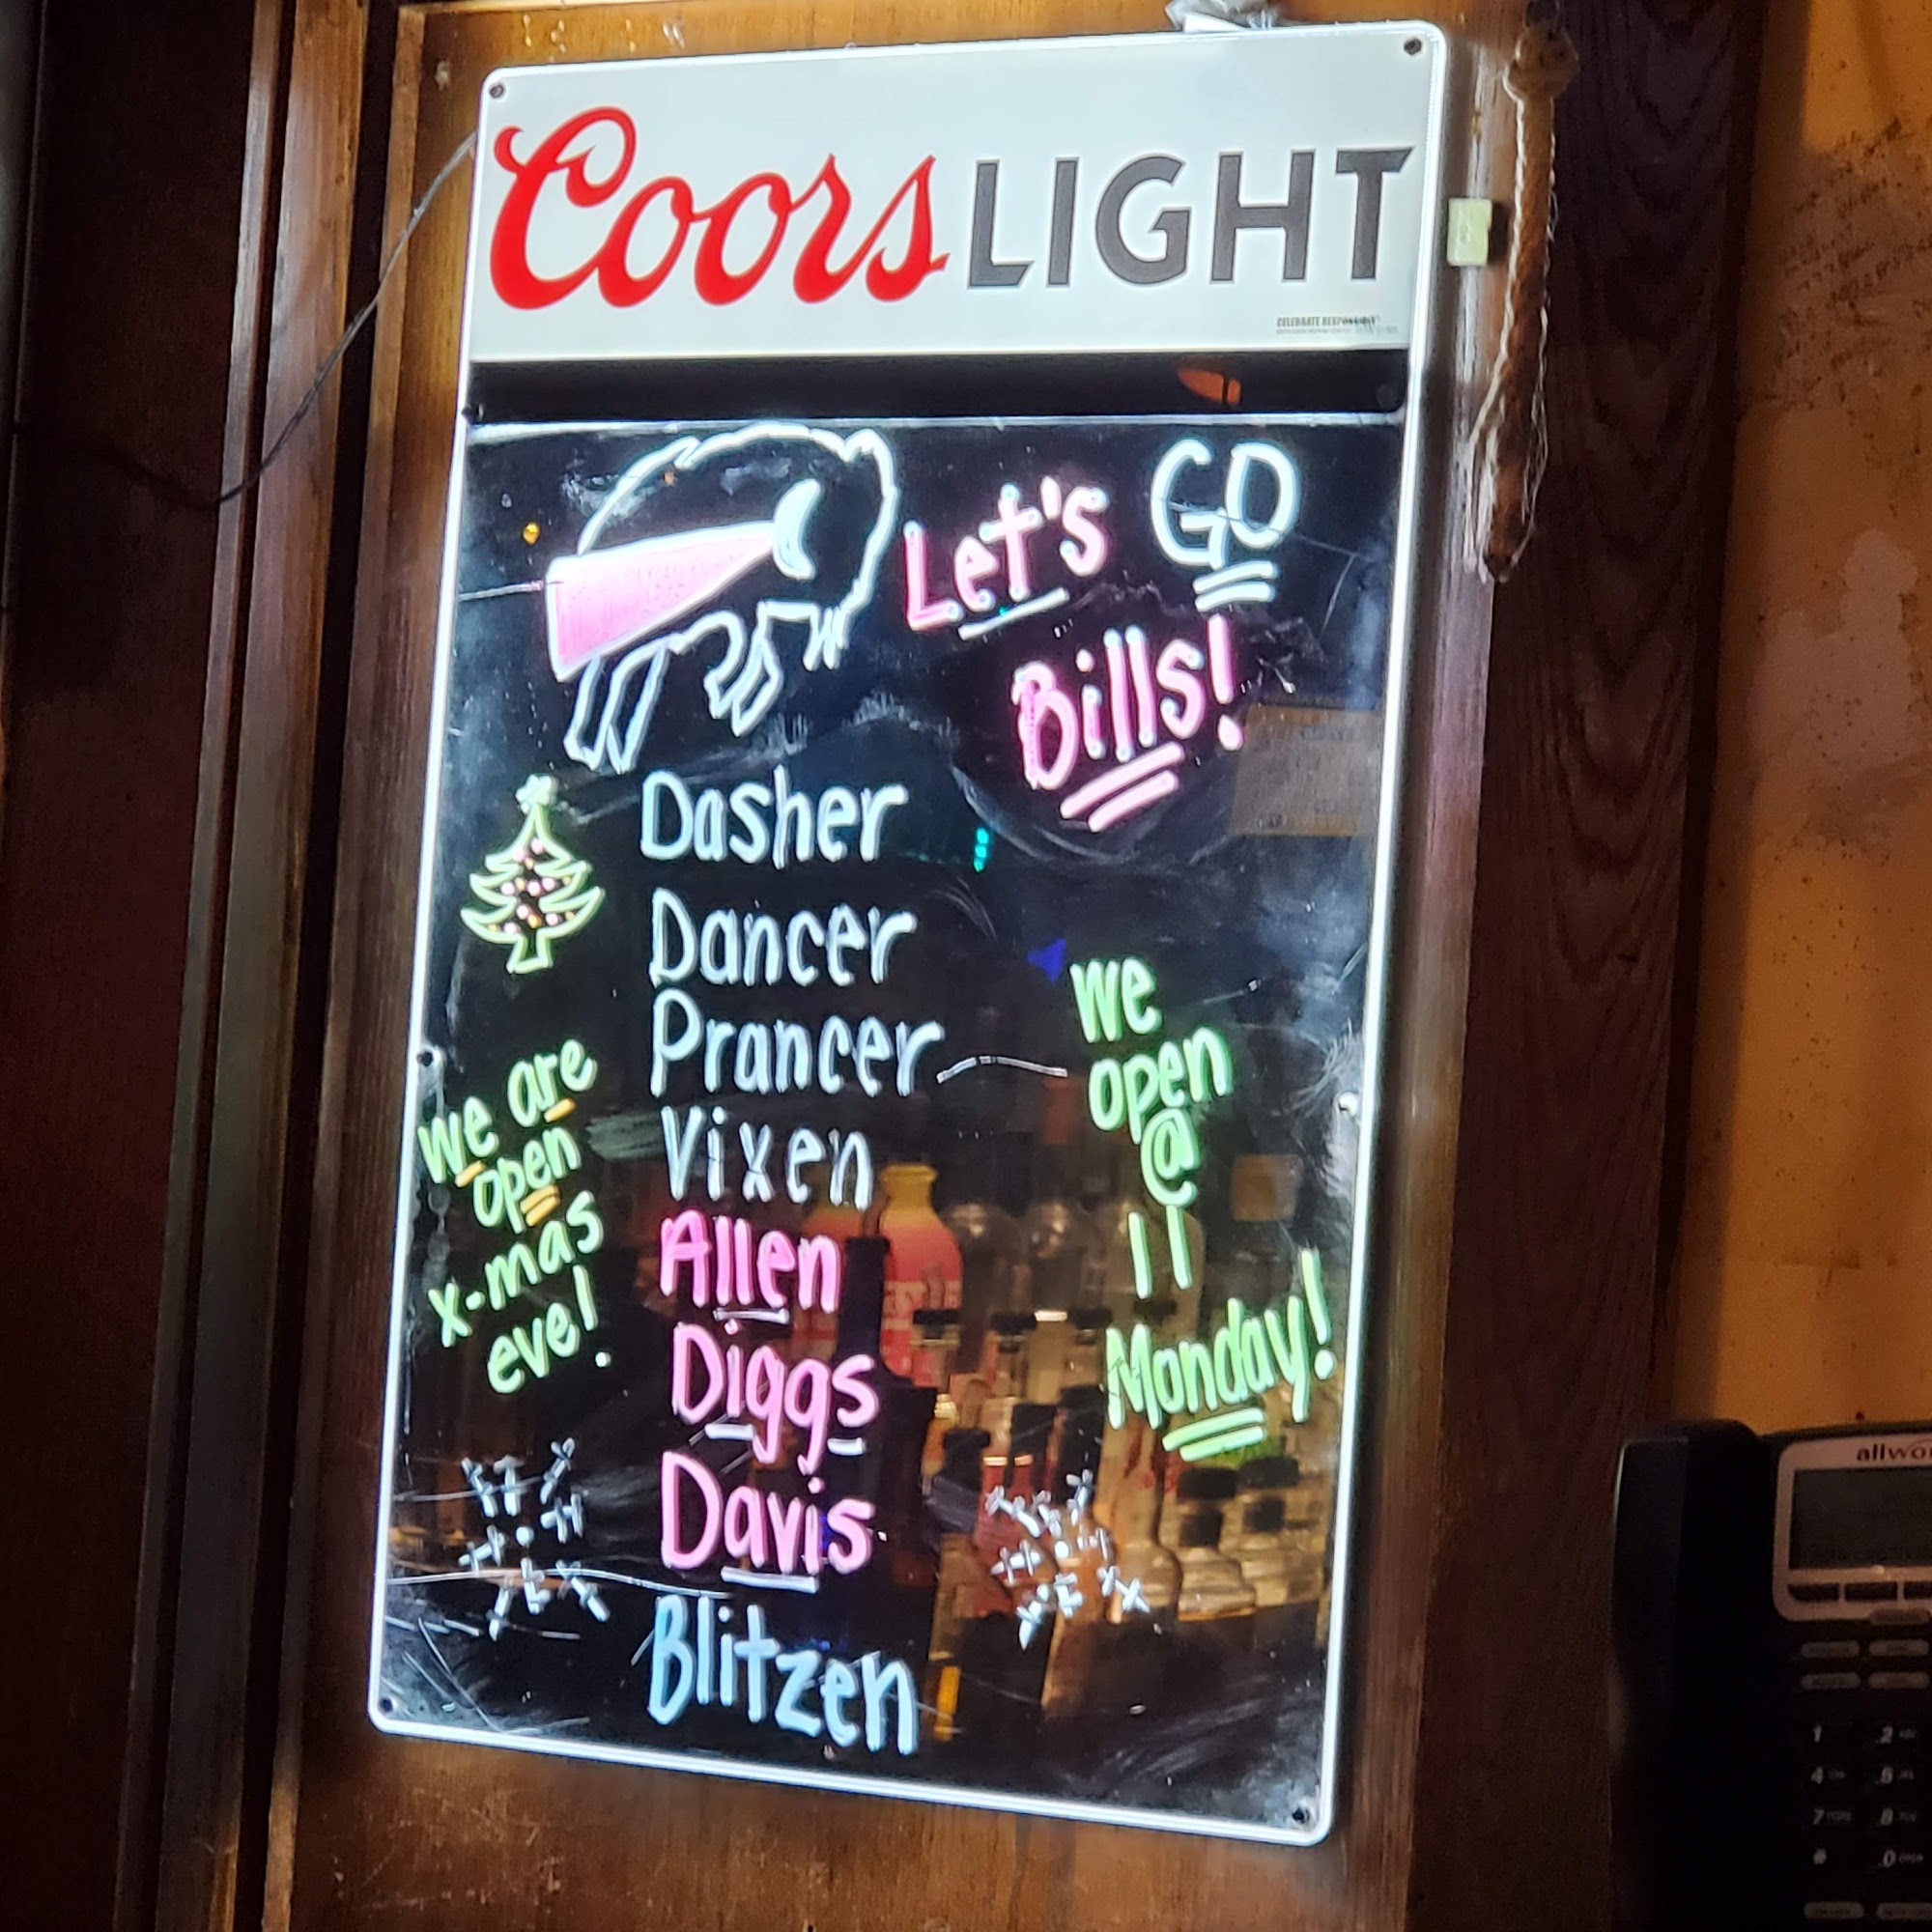 Coors LIGHT
CELEBRATE RESPONSIBLY
Let's GO
Bills!
Dasher
Dancer
Prancer
Vixen
Allen
Diggs
Davis
Blitzen
we are
open
x-mas
eve!
we
open
@
11
Monday!
1 2
4 5
7 8
# 0